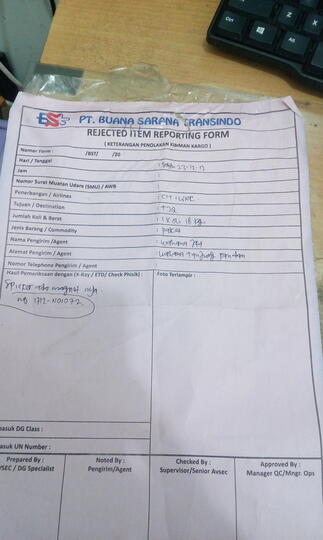 BSS PT. BUANA SARANA TRANSINDO
REJECTED ITEM REPORTING FORM
( KETERANGAN PENOLAKAN KIRIMAN KARGO )
Nomor Form : /BST/ /20
Hari / Tanggal :
Jam :
Nomor Surat Muatan Udara (SMU) / AWB :
Penerbangan / Airlines :
Tujuan / Destination :
Jumlah Koli & Berat : 1 Koli 18 kg
Jenis Barang / Commodity : paket
Nama Pengirim / Agent : wahana
Alamat Pengirim / Agent : wahana tanjung
Nomor Telephone Pengirim / Agent :
Hasil Pemeriksaan dengan (X-Ray / ETD/ Check Phisik) : Foto Terlampir :
Speaker ada magnet nya
asuk DG Class :
asuk UN Number :
Prepared By : Noted By : Checked By : Approved By :
VSEC / DG Specialist Pengirim/Agent Supervisor/Senior Avsec Manager QC/Mngr. Ops